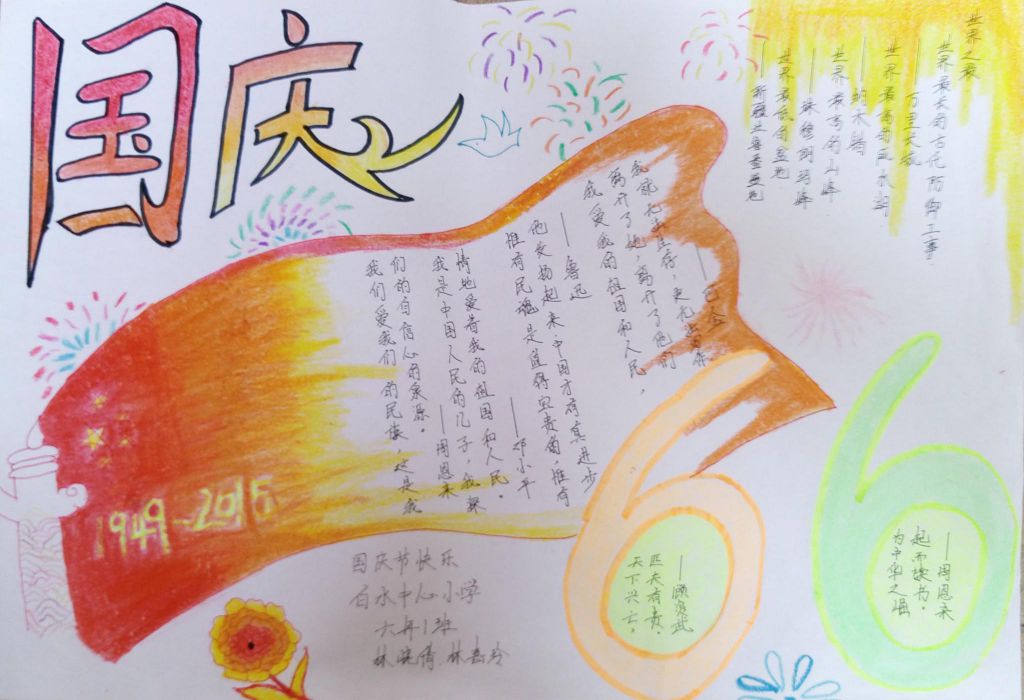 国庆
世界之最
世界最长的古代防御工事
——万里长城
世界最高的咸水湖
——纳木错
世界最高的山峰
——珠穆朗玛峰
世界最低的盆地
——新疆吐鲁番盆地
——巴金
我就无法生存，更无法写作
离开了她，离开了他们
我爱我的祖国和人民，
——鲁迅
他发扬起来，中国才有真进步
惟有民魂是值得宝贵的，惟有
——邓小平
情地爱着我的祖国和人民。
我是中国人民的儿子，我深
——周恩来
们的自信心的泉源。
我们爱我们的民族，这是我
1949~2015
66
——周恩来
起而读书。
为中华之崛
——顾炎武
匹夫有责。
天下兴亡，
国庆节快乐
白水中心小学
六年1班